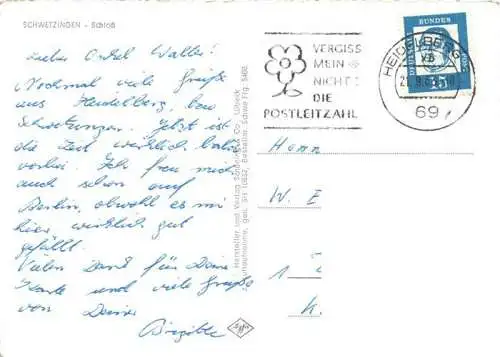 SCHWETZINGEN - Schloß
Lieber Onkel Walter!
Nochmal viele Grüße
aus Heidelberg, bzw
Schwetzingen. Jetzt ist
die Zeit wirklich bald
vorbei. Ich freu mich
auch schon auf
Berlin, obwohl es mir
hier wirklich gut
gefällt.
Vielen Dank für Deine
Karte und viele Grüße
von Deiner
Brigitte
Hersteller und Verlag Schöning & Co., Lübeck
gesch. SH 10632, Bestellnr. Schwe Ftg. 5406
VERGISS
MEIN
NICHT
DIE
POSTLEITZAHL
HEIDELBERG
69
DEUTSCHE BUNDESPOST
15
Herrn
W. E
1
K.